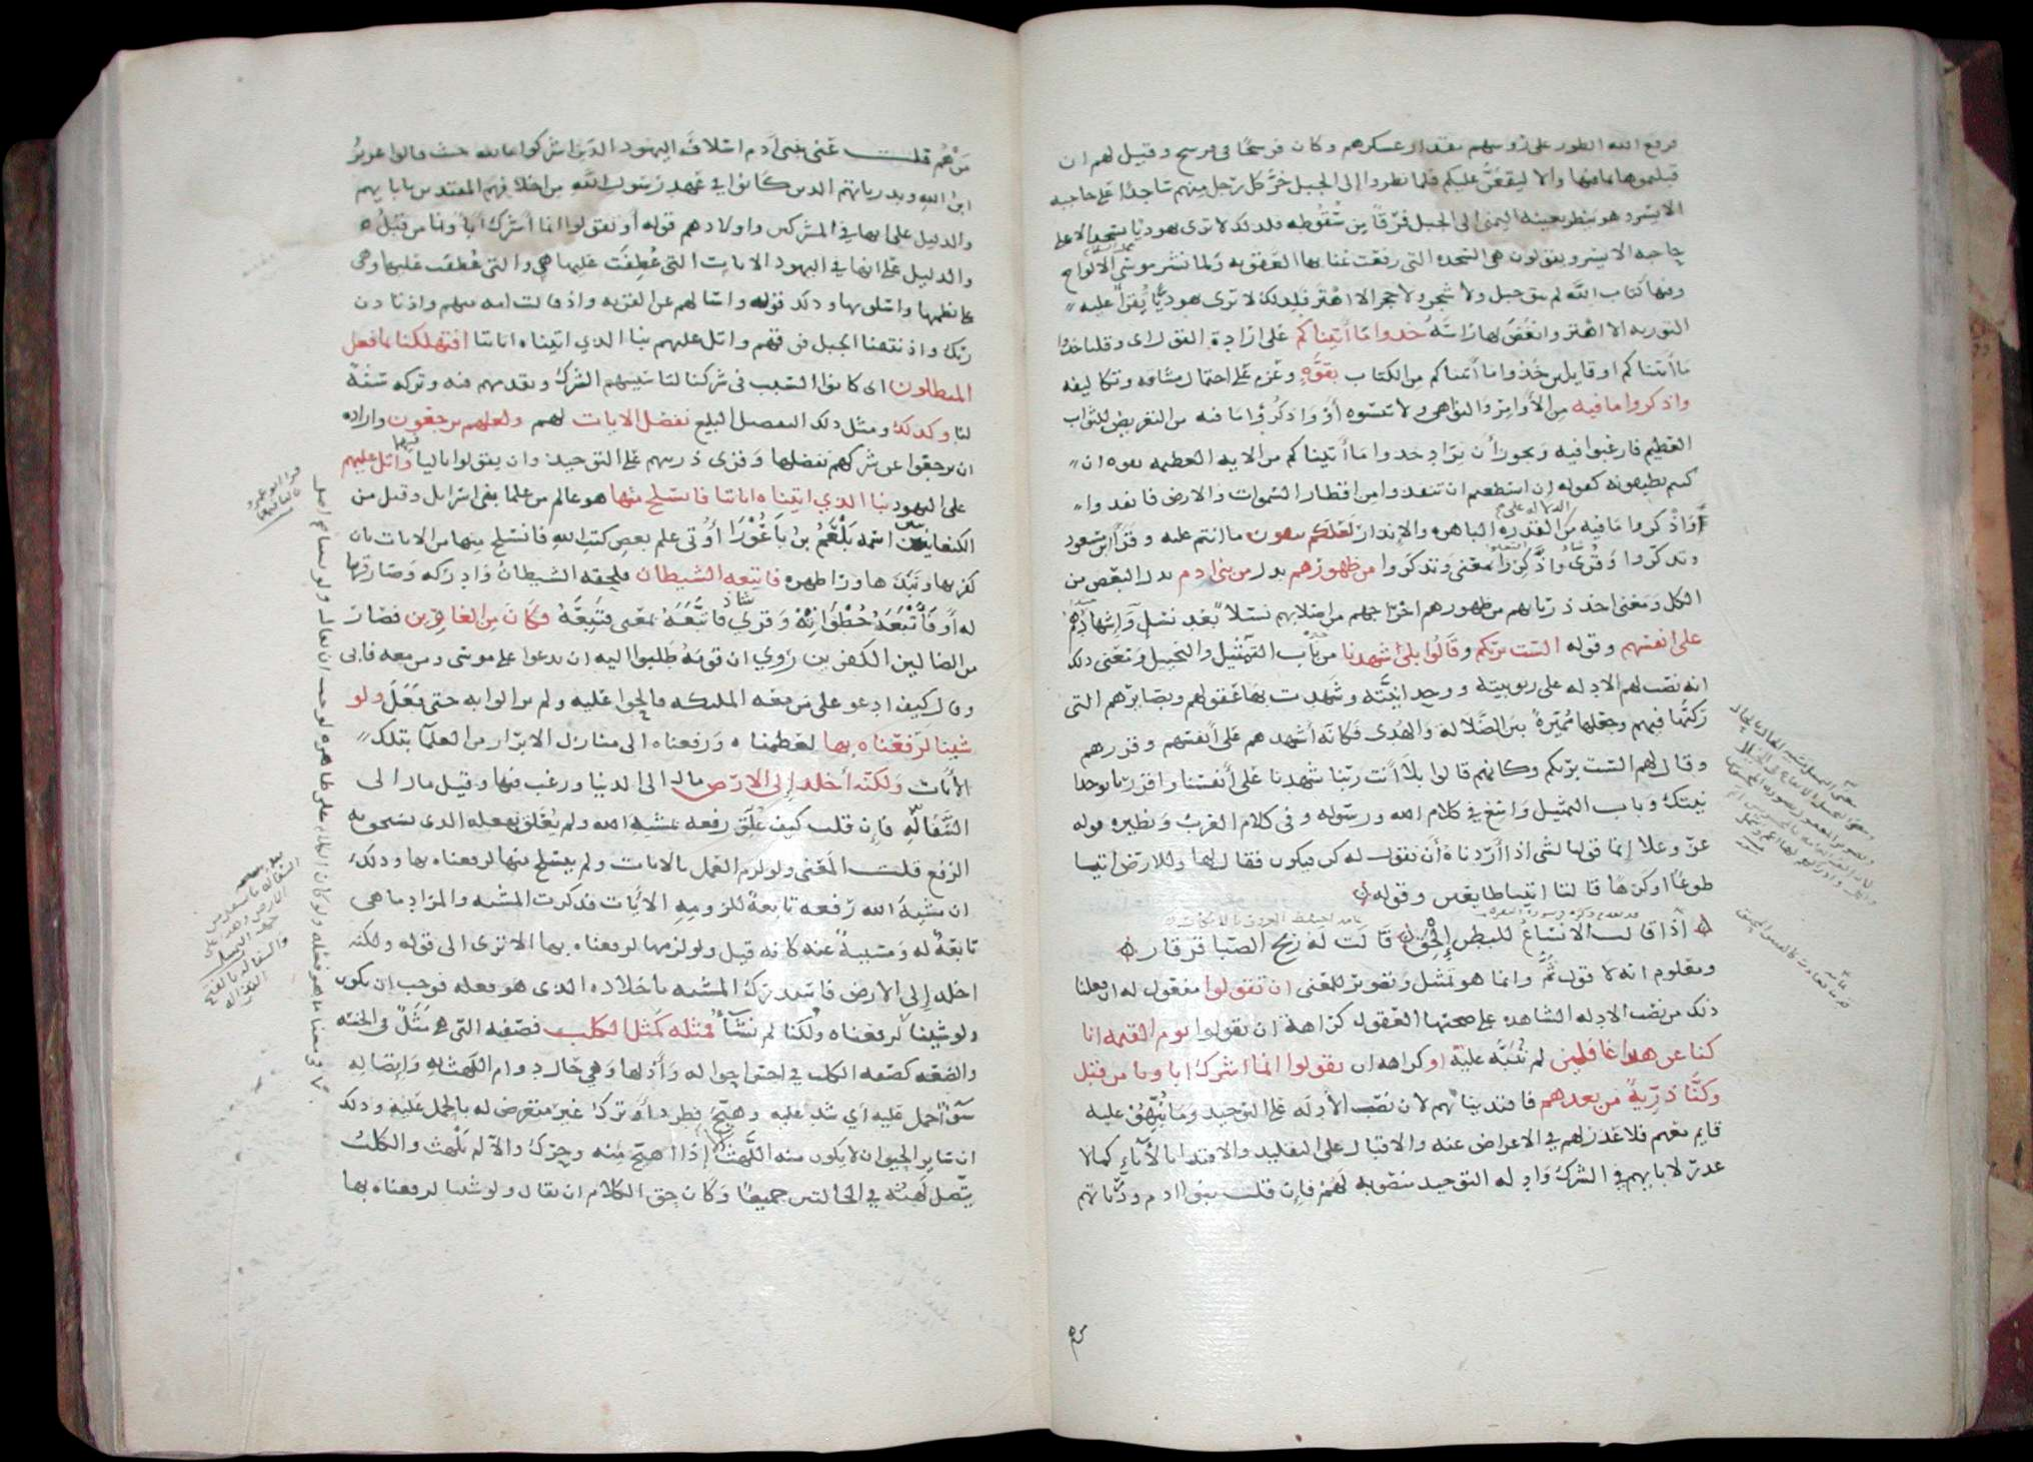 فرفع الله الطور على رؤسهم مقدار عسكرهم وكان فرسخا في فرسخ وقيل لهم ان
قبلتموها بما فيها والا ليقعن عليكم فلما نظروا إلى الجبل خر كل رجل منهم ساجدا على حاجبه
الايسر وهو ينظر بعينه اليمنى الى الجبل فرقا من سقوطه فلذلك لا ترى يهوديا يسجد الا على
حاجبه الايسر ويقولون هي السجده التي رفعت عنا بها العقوبه ولما نشر موسى الالواح
وفيها كتاب الله لم يبق جبل ولا شجر ولا حجر الا اهتز فلذلك لا ترى يهوديا يقرأ عليه
التوريه الا اهتز وانغض لها راسه خذوا ما آتيناكم على ارادة القول اى وقلنا خذوا
ما آتيناكم او قايلين خذوا ما آتيناكم من الكتاب بقوة وعزم على احتمال مشاقه وتكاليفه
واذكروا ما فيه من الأوامر والنواهى ولا تنسوه أو واذكروا ما فيه من التعريض للثواب
العظيم فارغبوا فيه ويجوز أن يراد خذوا ما آتيناكم من الايه العظيمه بقوه ان
كنتم تطيقونه كقوله إن استطعتم ان تنفذوا من اقطار السموات والارض فانفذوا
واذكروا ما فيه من القدره الباهره والإنذار لعلكم تتقون ما انتم عليه وقرأ ابن مسعود
وتذكروا وقرئ واذكروا بمعنى وتذكروا من ظهورهم بدل من بنى ادم بدل البعض من
الكل ومعنى اخذ ذرياتهم من ظهورهم اخراجهم من اصلابهم نسلا بعد نسل وإشهادهم
على انفسهم وقوله الست بربكم وقالوا بلى شهدنا من باب التمثيل والتخييل ومعنى ذلك
انه نصب لهم الادله على ربوبيته ووحدانيته وشهدت بها عقولهم وبصايرهم التى
ركبها فيهم وجعلها مميزة بين الضلالة والهدى فكانه أشهدهم على أنفسهم وقررهم
وقال لهم الست بربكم وكانهم قالوا بلا أنت ربنا شهدنا على أنفسنا واقررنا بوحدا
نيتك وباب التمثيل واسع في كلام الله ورسوله وفى كلام العرب ونظيره قوله
عز وعلا إنما قولنا لشى اذا أردناه أن نقول له كن فيكون فقال لها وللارض اتيا
طوعا او كرها قالتا اتينا طايعين وقوله
اذا قالت الانساع للبطن إلحق قالت له ريح الصبا قرقار
ومعلوم انه لا قول ثم وانما هو تمثيل وتصوير للمعنى ان تقولوا مفعول له اى فعلنا
ذلك من نصب الادله الشاهده على صحتها العقول كراهة ان تقولوا يوم القيمه انا
كنا عن هذا غافلين لم ننبه عليه او كراهه ان تقولوا انما اشرك اباونا من قبل
وكنا ذرية من بعدهم فاقتدينا بهم لان نصب الأدله على التوحيد وما نبهوا عليه
قايم معهم فلا عذر لهم في الاعراض عنه والاقبال على التقليد والاقتدا بالآباء كما لا
عذر لابايهم في الشرك وادله التوحيد منصوبه لهم فإن قلت بنوا ادم وذرياتهم
من هم قلت عنى ببنى آدم اسلاف اليهود الذين اشركوا بالله حيث قالوا عزير
ابن الله وبذرياتهم الذين كانوا في عهد رسول الله من اخلافهم المقتدين بابايهم
والدليل على انها في المشركين واولادهم قوله أو تقولوا انما أشرك آباونا من قبل
والدليل على انها في اليهود الايات التى عطفت عليها هي والتى عطفت عليها وهى
على نظمها واسلوبها وذلك قوله واسالهم عن القريه واذ قالت امه منهم واذ تاذن
ربك واذ نتقنا الجبل فوقهم واتل عليهم نبا الذي اتيناه اياتنا افتهلكنا بما فعل
المبطلون اى كانوا السبب فى شركنا لتاسيسهم الشرك وتقدمهم فيه وتركه سنة
لنا وكذلك ومثل ذلك التفصيل البليغ نفصل الايات لهم ولعلهم يرجعون واراده
ان يرجعوا عن شركهم نفصلها وقرئ ذريتهم على التوحيد وان يقولوا باليا واتل عليهم
على اليهود نبا الذي اتيناه اياتنا فانسلخ منها هو عالم من علما بنى اسرايل وقيل من
الكنعانيين اسمه بلعم بن باعورا أوتى علم بعض كتب الله فانسلخ منها من الايات بان
كفر بها ونبذها ورا ظهره فاتبعه الشيطان فلحقه الشيطان وادركه وصار قرينا
له أو فأتبعه خطواته وقرئ فاتبعه بمعنى فتبعه فكان من الغاوين فصار
من الضالين الكفرين روي ان قومه طلبوا اليه ان يدعوا على موسى ومن معه فابى
وقال كيف ادعو على من معه الملئكه فالحوا عليه ولم يزالوا به حتى فعل ولو
شينا لرفعناه بها لعظمناه ورفعناه الى منازل الابرار من العلما بتلك
الأيات ولكنه أخلد إلى الارض مال الى الدنيا ورغب فيها وقيل مال الى
السفالة فإن قلت كيف علق رفعه بمشيه الله ولم يعلق بفعله الذى يستحق به
الرفع قلت المعنى ولو لزم العمل بالايات ولم ينسلخ منها لرفعناه بها وذلك
ان مشية الله رفعه تابعة للزومه الأيات فذكرت المشيه والمراد ما هى
تابعة له ومسببة عنه كانه قيل ولو لزمها لرفعناه بها الا ترى الى قوله ولكنه
اخلد إلى الارض فاستدرك المشيه باخلاده الذى هو فعله فوجب ان يكون
ولو شينا لرفعناه ولكنا لم نشأ فمثله كمثل الكلب فصفته التى هى مثل فى الخسه
والضعه كصفه الكلب في اخس احواله وأذلها وهي حال دوام اللهث به وإتصاله
سوآ حمل عليه أي شد عليه وهيج فطرد أو ترك غير متعرض له بالحمل عليه وذلك
ان سائر الحيوان لا يكون منه اللهث إذا هيج منه وحرك والا لم يلهث والكلب
يتصل لهثه في الحالتين جميعا وكان حق الكلام ان يقال ولو شينا لرفعناه بها